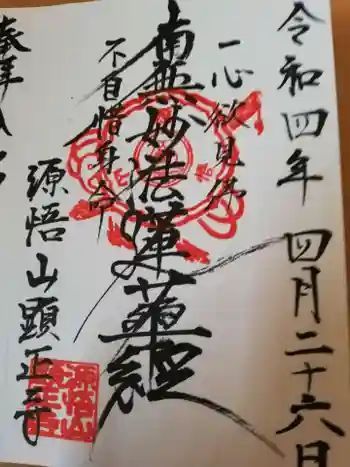 令和四年 四月二十六日
一心欲見佛
南無妙法蓮華経
不自惜身命
源悟山顕正寺
奉拝